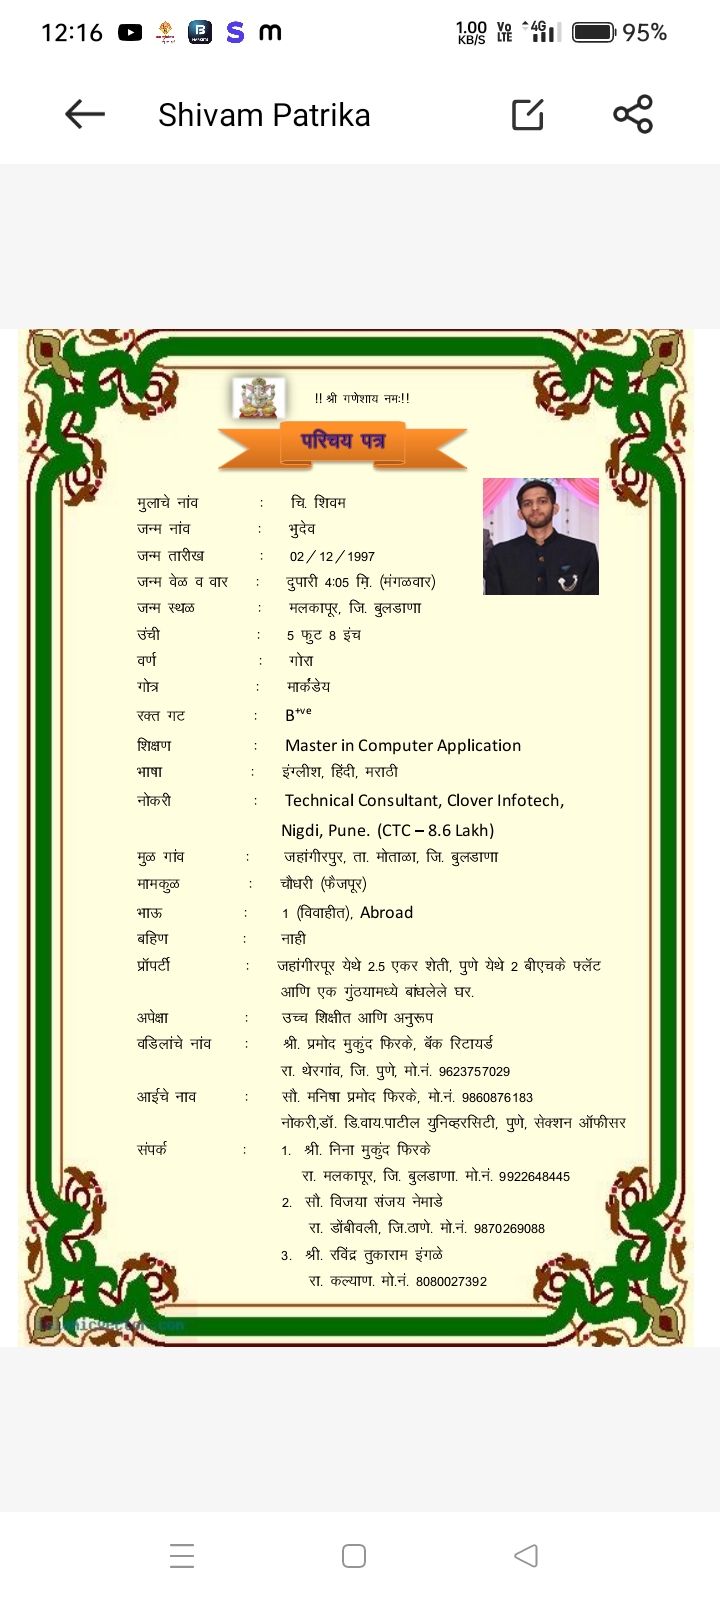 12:16 1.00 KB/S Vo LTE 4G 95%
Shivam Patrika
!! श्री गणेशाय नमः!!
परिचय पत्र
मुलाचे नांव : चि. शिवम
जन्म नांव : भुदेव
जन्म तारीख : 02/12/1997
जन्म वेळ व वार : दुपारी 4:05 मि. (मंगळवार)
जन्म स्थळ : मलकापूर, जि. बुलडाणा
उंची : 5 फुट 8 इंच
वर्ण : गोरा
गोत्र : मार्कंडेय
रक्त गट : B+ve
शिक्षण : Master in Computer Application
भाषा : इंग्लीश, हिंदी, मराठी
नोकरी : Technical Consultant, Clover Infotech,
Nigdi, Pune. (CTC – 8.6 Lakh)
मुळ गांव : जहांगीरपुर, ता. मोताळा, जि. बुलडाणा
मामकुळ : चौधरी (फैजपूर)
भाऊ : 1 (विवाहीत), Abroad
बहिण : नाही
प्रॉपर्टी : जहांगीरपूर येथे 2.5 एकर शेती, पुणे येथे 2 बीएचके फ्लॅट
आणि एक गुंठयामध्ये बांधलेले घर.
अपेक्षा : उच्च शिक्षीत आणि अनुरूप
वडिलांचे नांव : श्री. प्रमोद मुकुंद फिरके, बॅंक रिटायर्ड
रा. थेरगांव, जि. पुणे, मो.नं. 9623757029
आईचे नाव : सौ. मनिषा प्रमोद फिरके, मो.नं. 9860876183
नोकरी,डॉ. डि.वाय.पाटील युनिव्हरसिटी, पुणे, सेक्शन ऑफीसर
संपर्क : 1. श्री. निना मुकुंद फिरके
रा. मलकापूर, जि. बुलडाणा. मो.नं. 9922648445
2. सौ. विजया संजय नेमाडे
रा. डोंबीवली, जि.ठाणे. मो.नं. 9870269088
3. श्री. रविंद्र तुकाराम इंगळे
रा. कल्याण. मो.नं. 8080027392